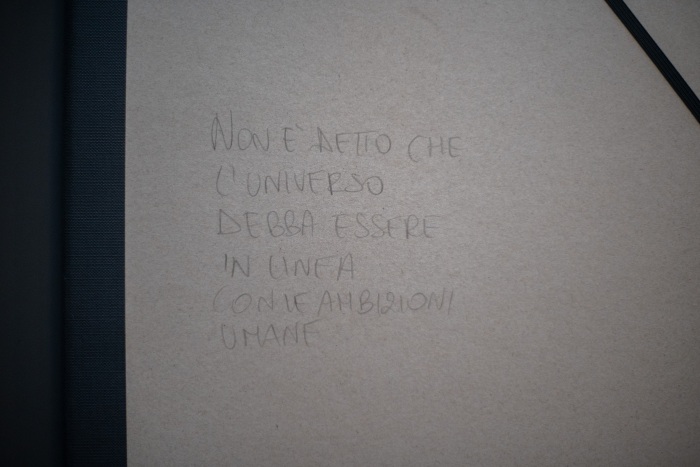 NON E' DETTO CHE
L'UNIVERSO
DEBBA ESSERE
IN LINEA
CON LE AMBIZIONI
UMANE